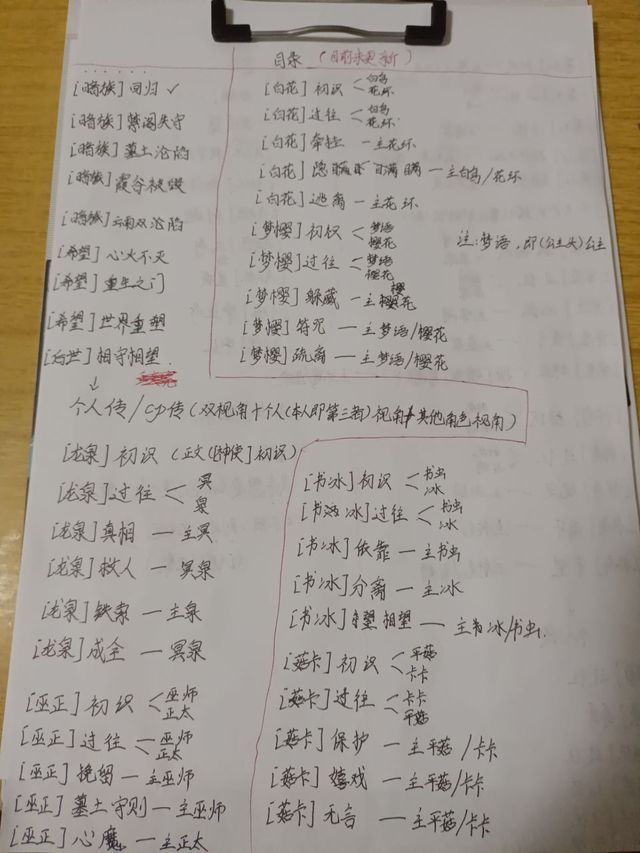 目录 (目前未更新)
[暗族] 回归 ✓
[暗族] 禁阁失守
[暗族] 墓土沦陷
[暗族] 霞谷被毁
[暗族] 云雨双沦陷
[希望] 心火不灭
[希望] 重生之门
[希望] 世界重塑
[后世] 相守相望
[白花] 初识 < 白鸟 花环
[白花] 过往 < 白鸟 花环
[白花] 牵挂 — 主花环
[白花] 隐瞒 — 主白鸟/花环
[白花] 逃离 — 主花环
[梦樱] 初识 < 梦语 樱花
[梦樱] 过往 < 梦语 樱花
[梦樱] 躲藏 — 主樱花
[梦樱] 符咒 — 主梦语/樱花
[梦樱] 疏离 — 主梦语/樱花
注:梦语,即(公主头)公主
个人传/cp传(双视角+个人(本人即第三者)视角+其他角色视角)
[龙泉] 初识 (正文[ ]初识)
[龙泉] 过往 < 冥 泉
[龙泉] 真相 — 主冥
[龙泉] 救人 — 冥泉
[龙泉] 铁索 — 主泉
[龙泉] 成全 — 冥泉
[巫正] 初识 < 巫师 正太
[巫正] 过往 < 巫师 正太
[巫正] 挽留 — 主巫师
[巫正] 墓土守则 — 主巫师
[巫正] 心魔 — 主正太
[书冰] 初识 < 书虫 冰
[书冰] 过往 < 书虫 冰
[书冰] 依靠 — 主书虫
[书冰] 分离 — 主冰
[书冰] 相望 — 主冰/书虫
[菇卡] 初识 < 平菇 卡卡
[菇卡] 过往 < 卡卡 平菇
[菇卡] 保护 — 主平菇/卡卡
[菇卡] 嬉戏 — 主平菇/卡卡
[菇卡] 无言 — 主平菇/卡卡